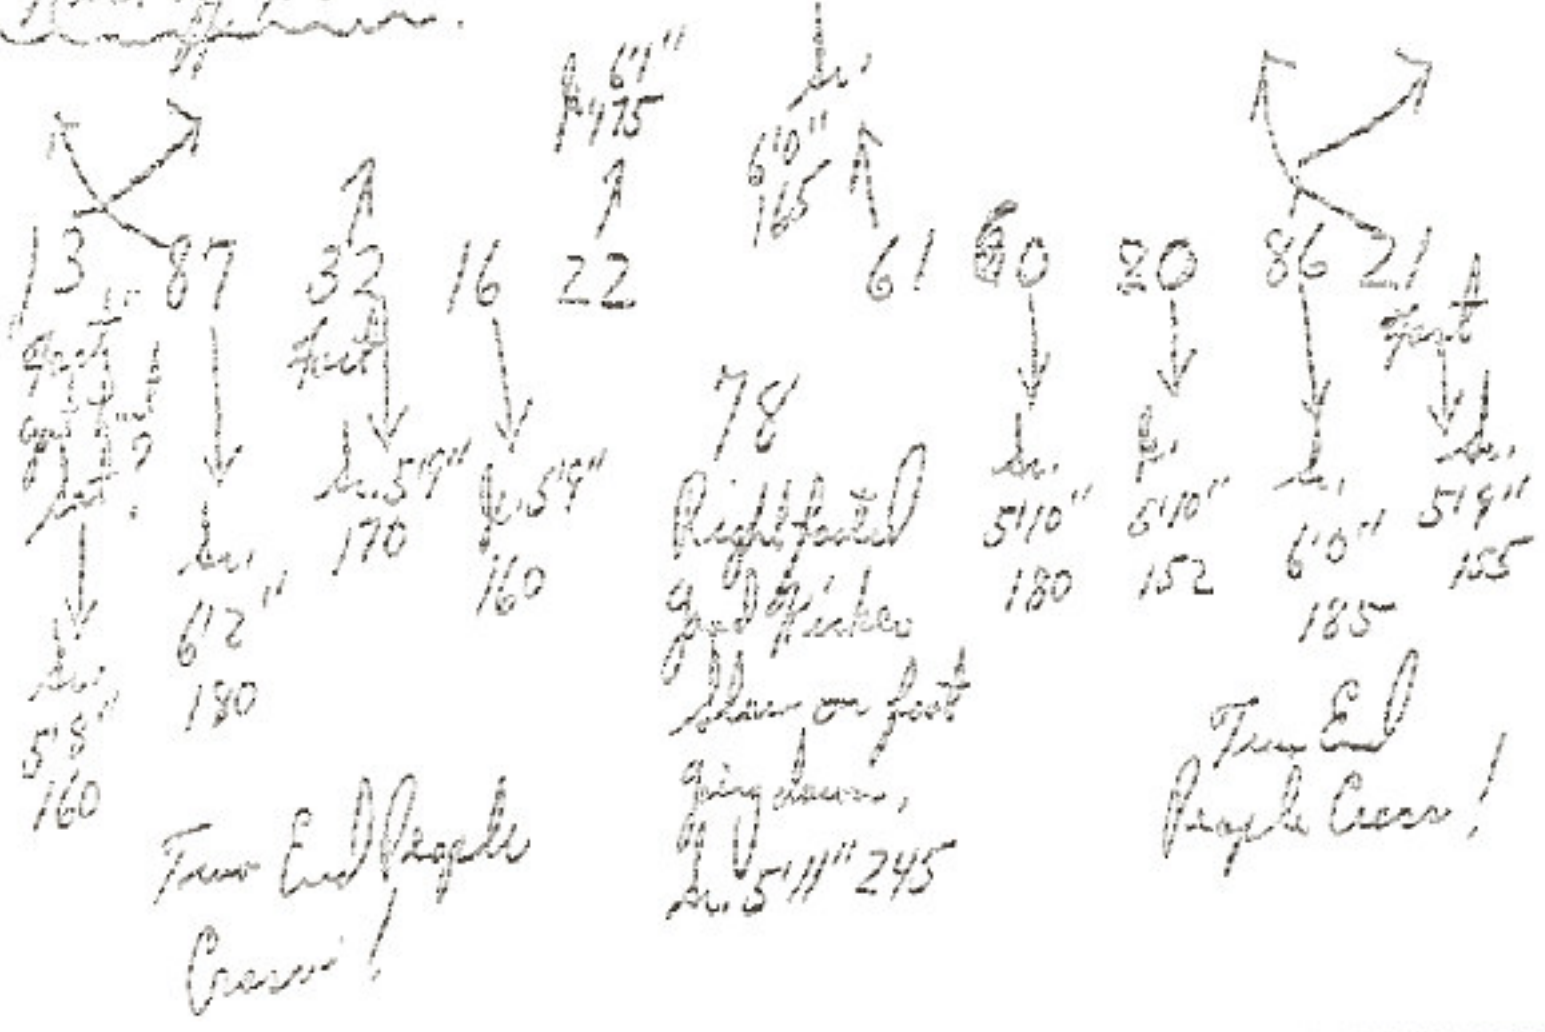 Kickoff team.
6'1"
Jr. 175
Sr.
6'0"
165
13 87 32 16 22 61 60 20 86 21
Fast
Fast
Fast
Sr.
5'8"
160
Sr.
6'2"
180
Sr. 5'9"
170
Jr. 5'9"
160
78
Right footed
Good Kicker
Slow on foot
going down,
Sr. 5'11" 245
Sr.
5'10"
180
Jr.
5'10"
152
Sr.
6'0"
185
Sr.
5'9"
155
Two End People
Cross!
Two End
People Cross!